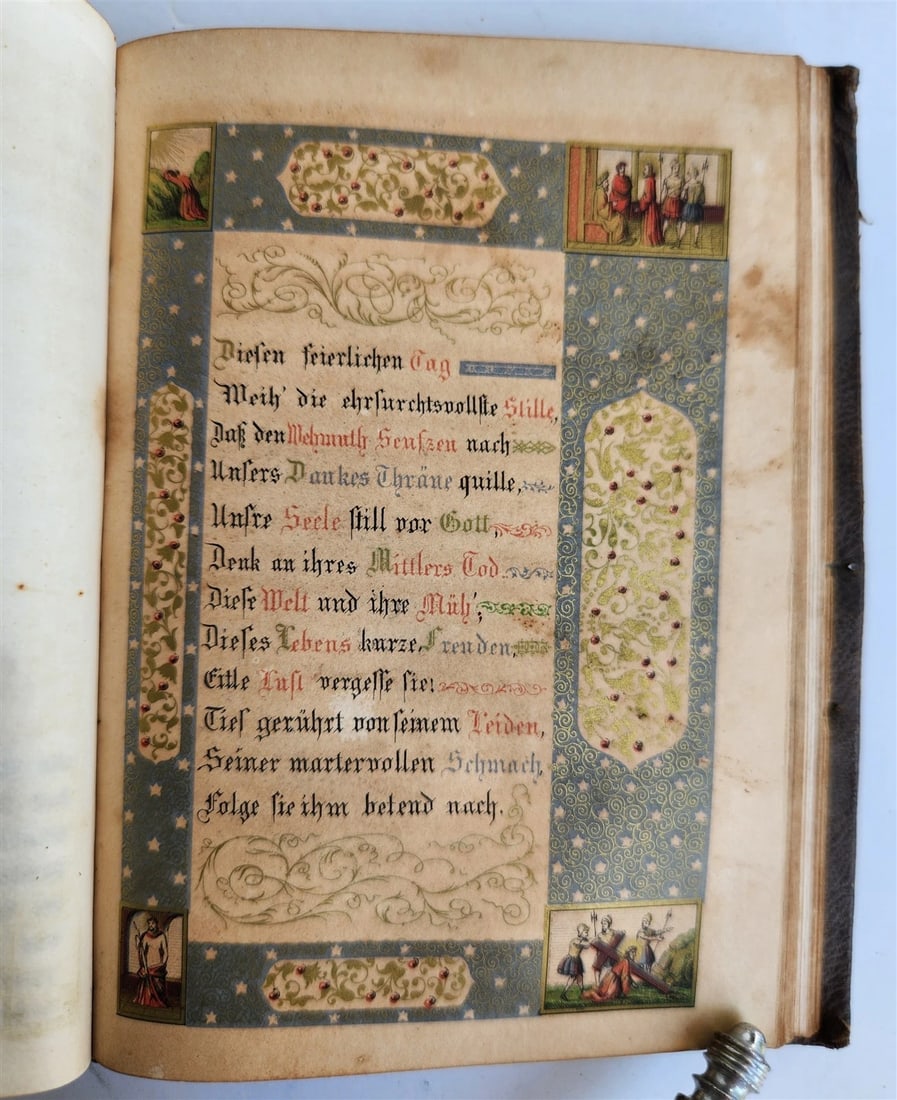 Diesen feierlichen Tag
Weih' die ehrfurchtsvollste Stille,
Daß den Wehmuth Seufzen nach
Unsers Dankes Thräne quille,
Unsre Seele still vor Gott,
Denk an ihres Mittlers Tod.
Diese Welt und ihre Müh',
Dieses Lebens kurze Freuden,
Eitle Lust vergesse sie:
Tief gerührt von seinem Leiden,
Seiner martervollen Schmach,
Folge sie ihm betend nach.